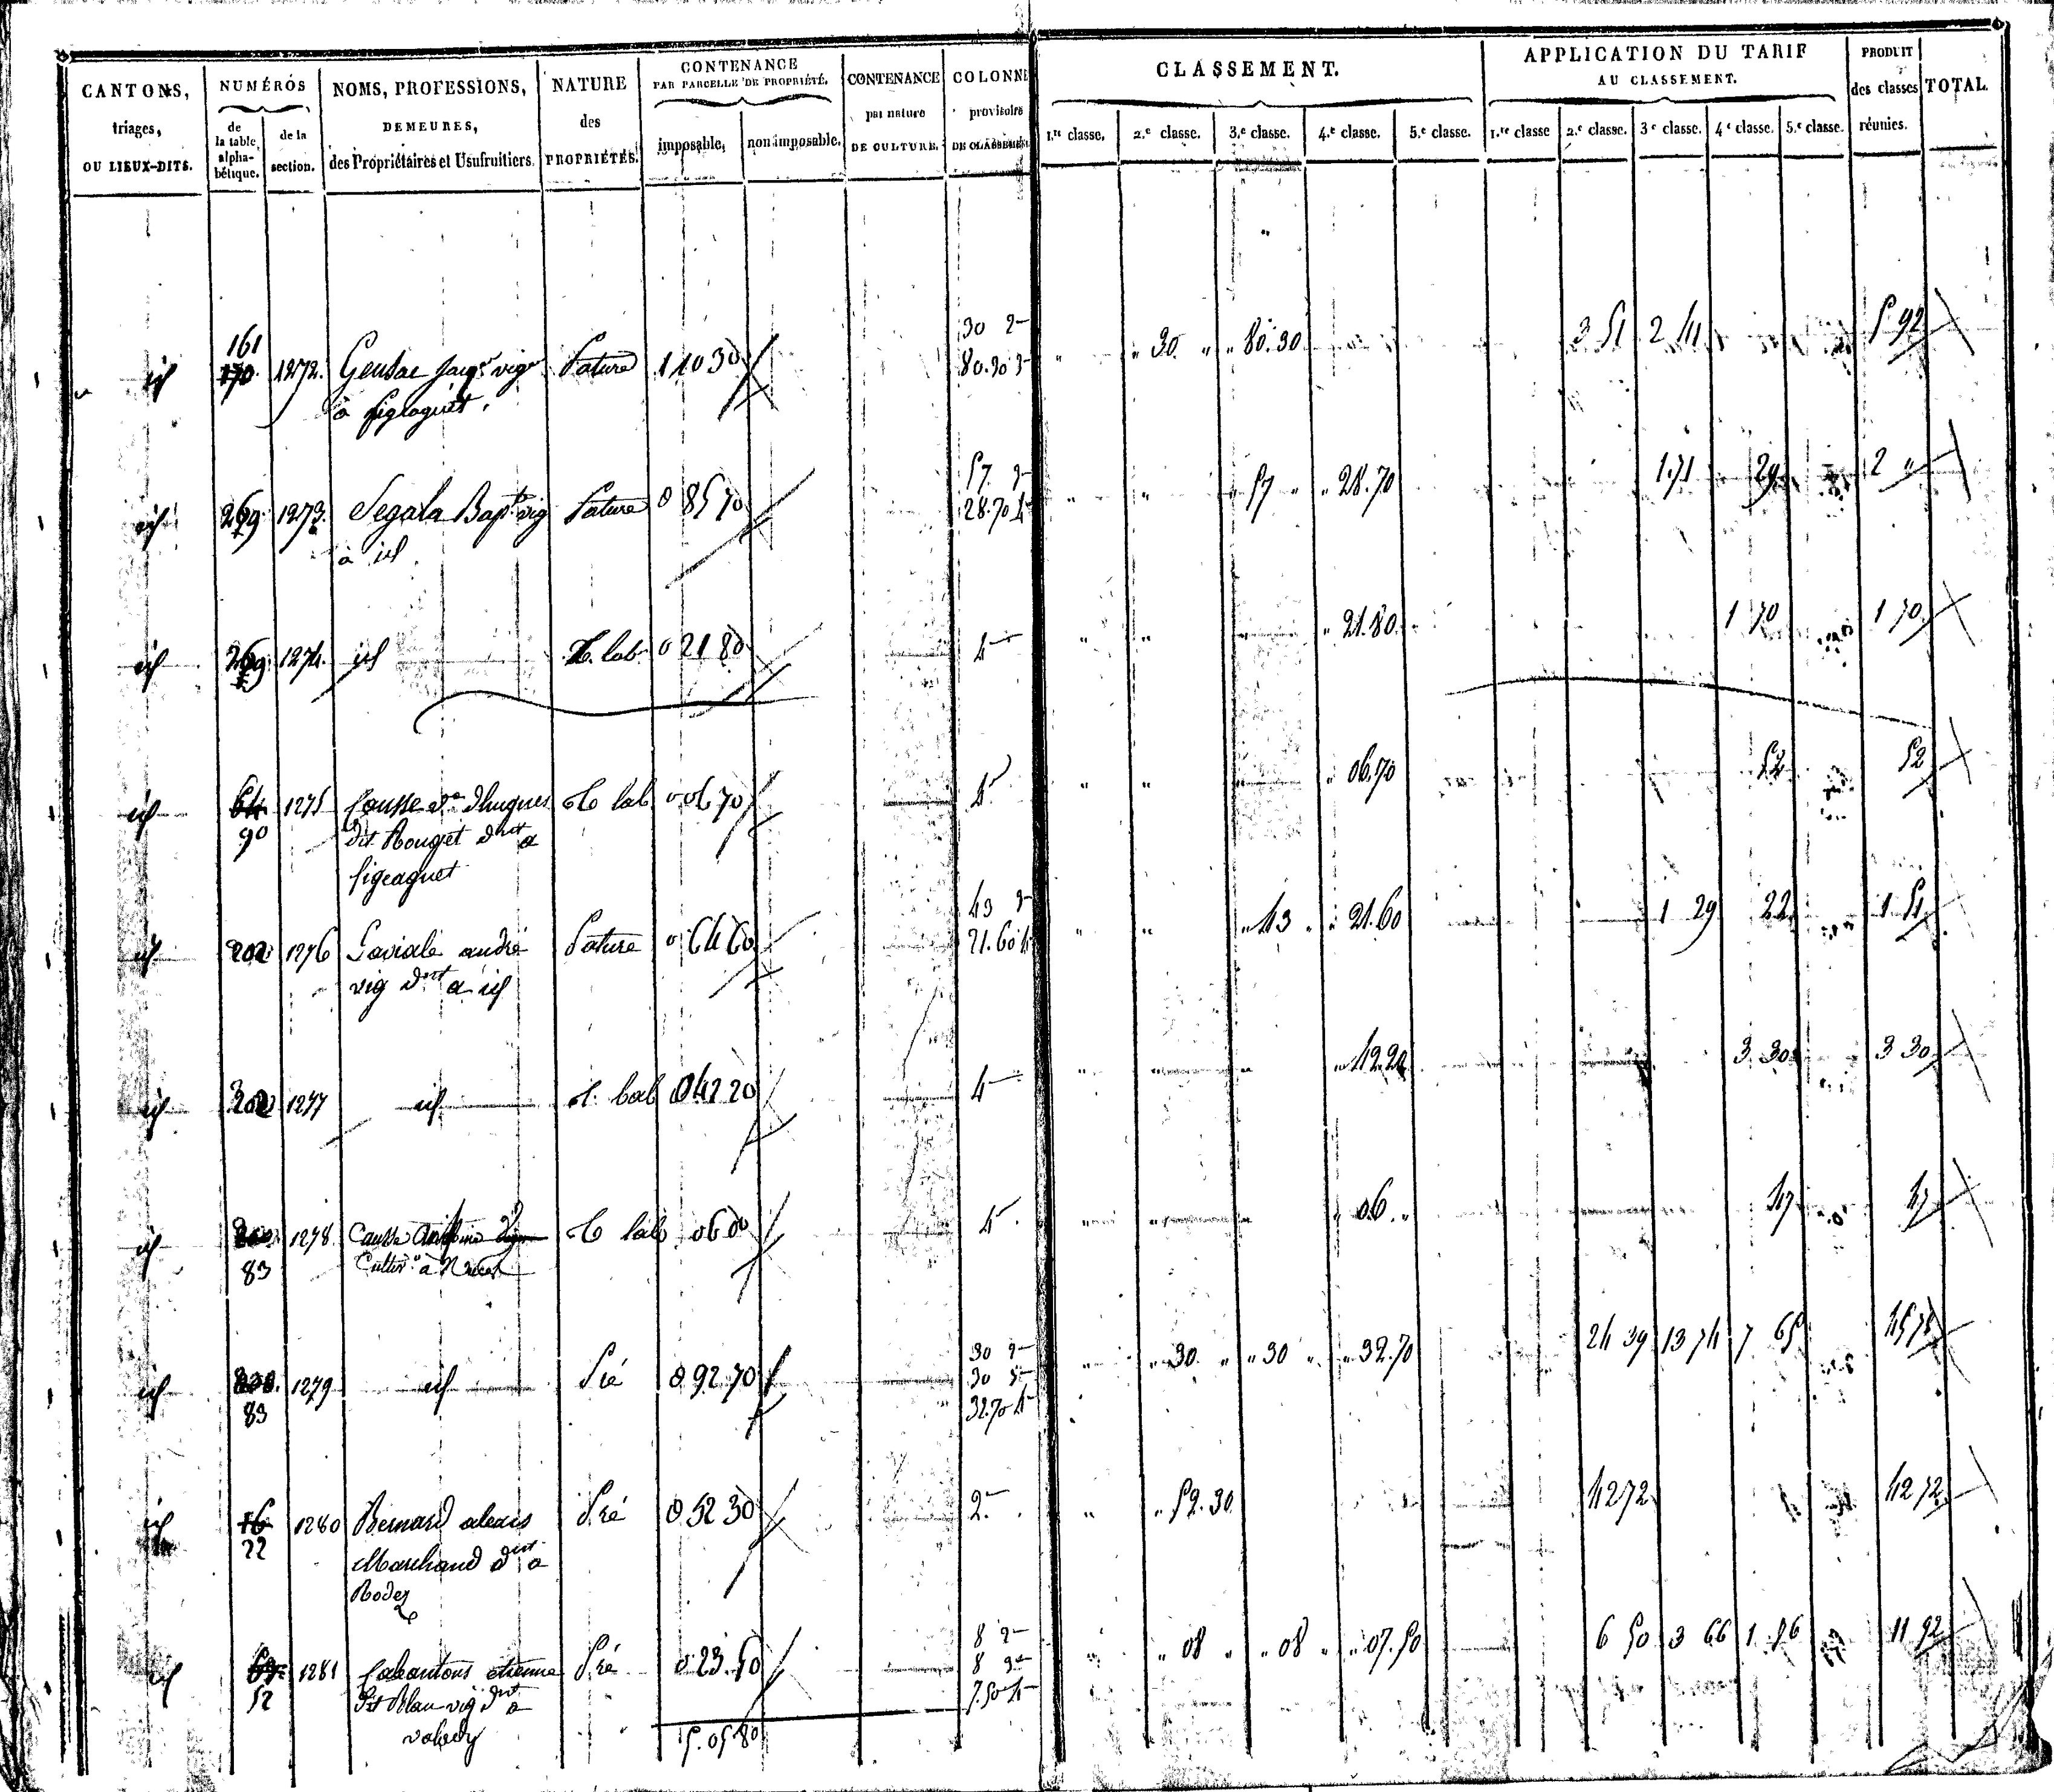 CANTONS, triages, OU LIEUX-DITS. NUMÉROS de la table alphabétique. de la section. NOMS, PROFESSIONS, DEMEURES, des Propriétaires et Usufruitiers. NATURE des PROPRIÉTÉS. CONTENANCE PAR PARCELLE DE PROPRIÉTÉ. imposable, non imposable. CONTENANCE par nature DE CULTURE. COLONNE provisoire DE CLASSEMENT. CLASSEMENT. 1.re classe. 2.e classe. 3.e classe. 4.e classe. 5.e classe. APPLICATION DU TARIF AU CLASSEMENT. 1.re classe 2.e classe. 3.e classe. 4.e classe. 5.e classe. PRODUIT des classes réunies. TOTAL.
161 30 2
id 170 1272. Gensac Jacqs vigr Pature 1 10 30 80.30 3 " " 30 " " 80.30 3 51 2 41 5 92
à figeaguet.
57. 3
id 269 1273. Segala Bapte vig Pature 0 85 70 28.70 4 " " " 57 " " 28.70 1.71 29 2 "
à id
id 269 1274. id T. lab. 0 21 80 4 " " " 21.80 1 70 1 70
id 64 1275 Causse Ve d'hugues T lab 0 06 70 4 " " " 06.70 52 52
90 dit Rouget dnt a
figeaguet
43 3
id 202 1276 Laviale andré Pature 0 64 60 21.60 4 " " " 43 " " 21.60 1 29 22 1 51
vig dnt a id
id 202 1277 id T. lab 0 42 20 4 " " 42.20 3 30 3 30
id 1278 Causse Antoine T lab 06 00 4 " 06. " 47 47
83 Cultivr à
30 2
id 1279 id Pré 0 92.70 30 3 " " 30. " " 30 " " 32.70 24 39 13 74 7 65 45 78
83 32.70 4
id 16 1280 Bernard alexis Pré 0 52 30 2. " " 52.30 42 72 42 72
22 Marchand dnt a
Rodez
8 2
id 1281 etienne Pré 0 23.50 8 3 " " 08 " " 08 " " 07.50 6 50 3 66 1 76 11 92
52 dit Blau vig dnt a 7.50 4
valady
5.05 80